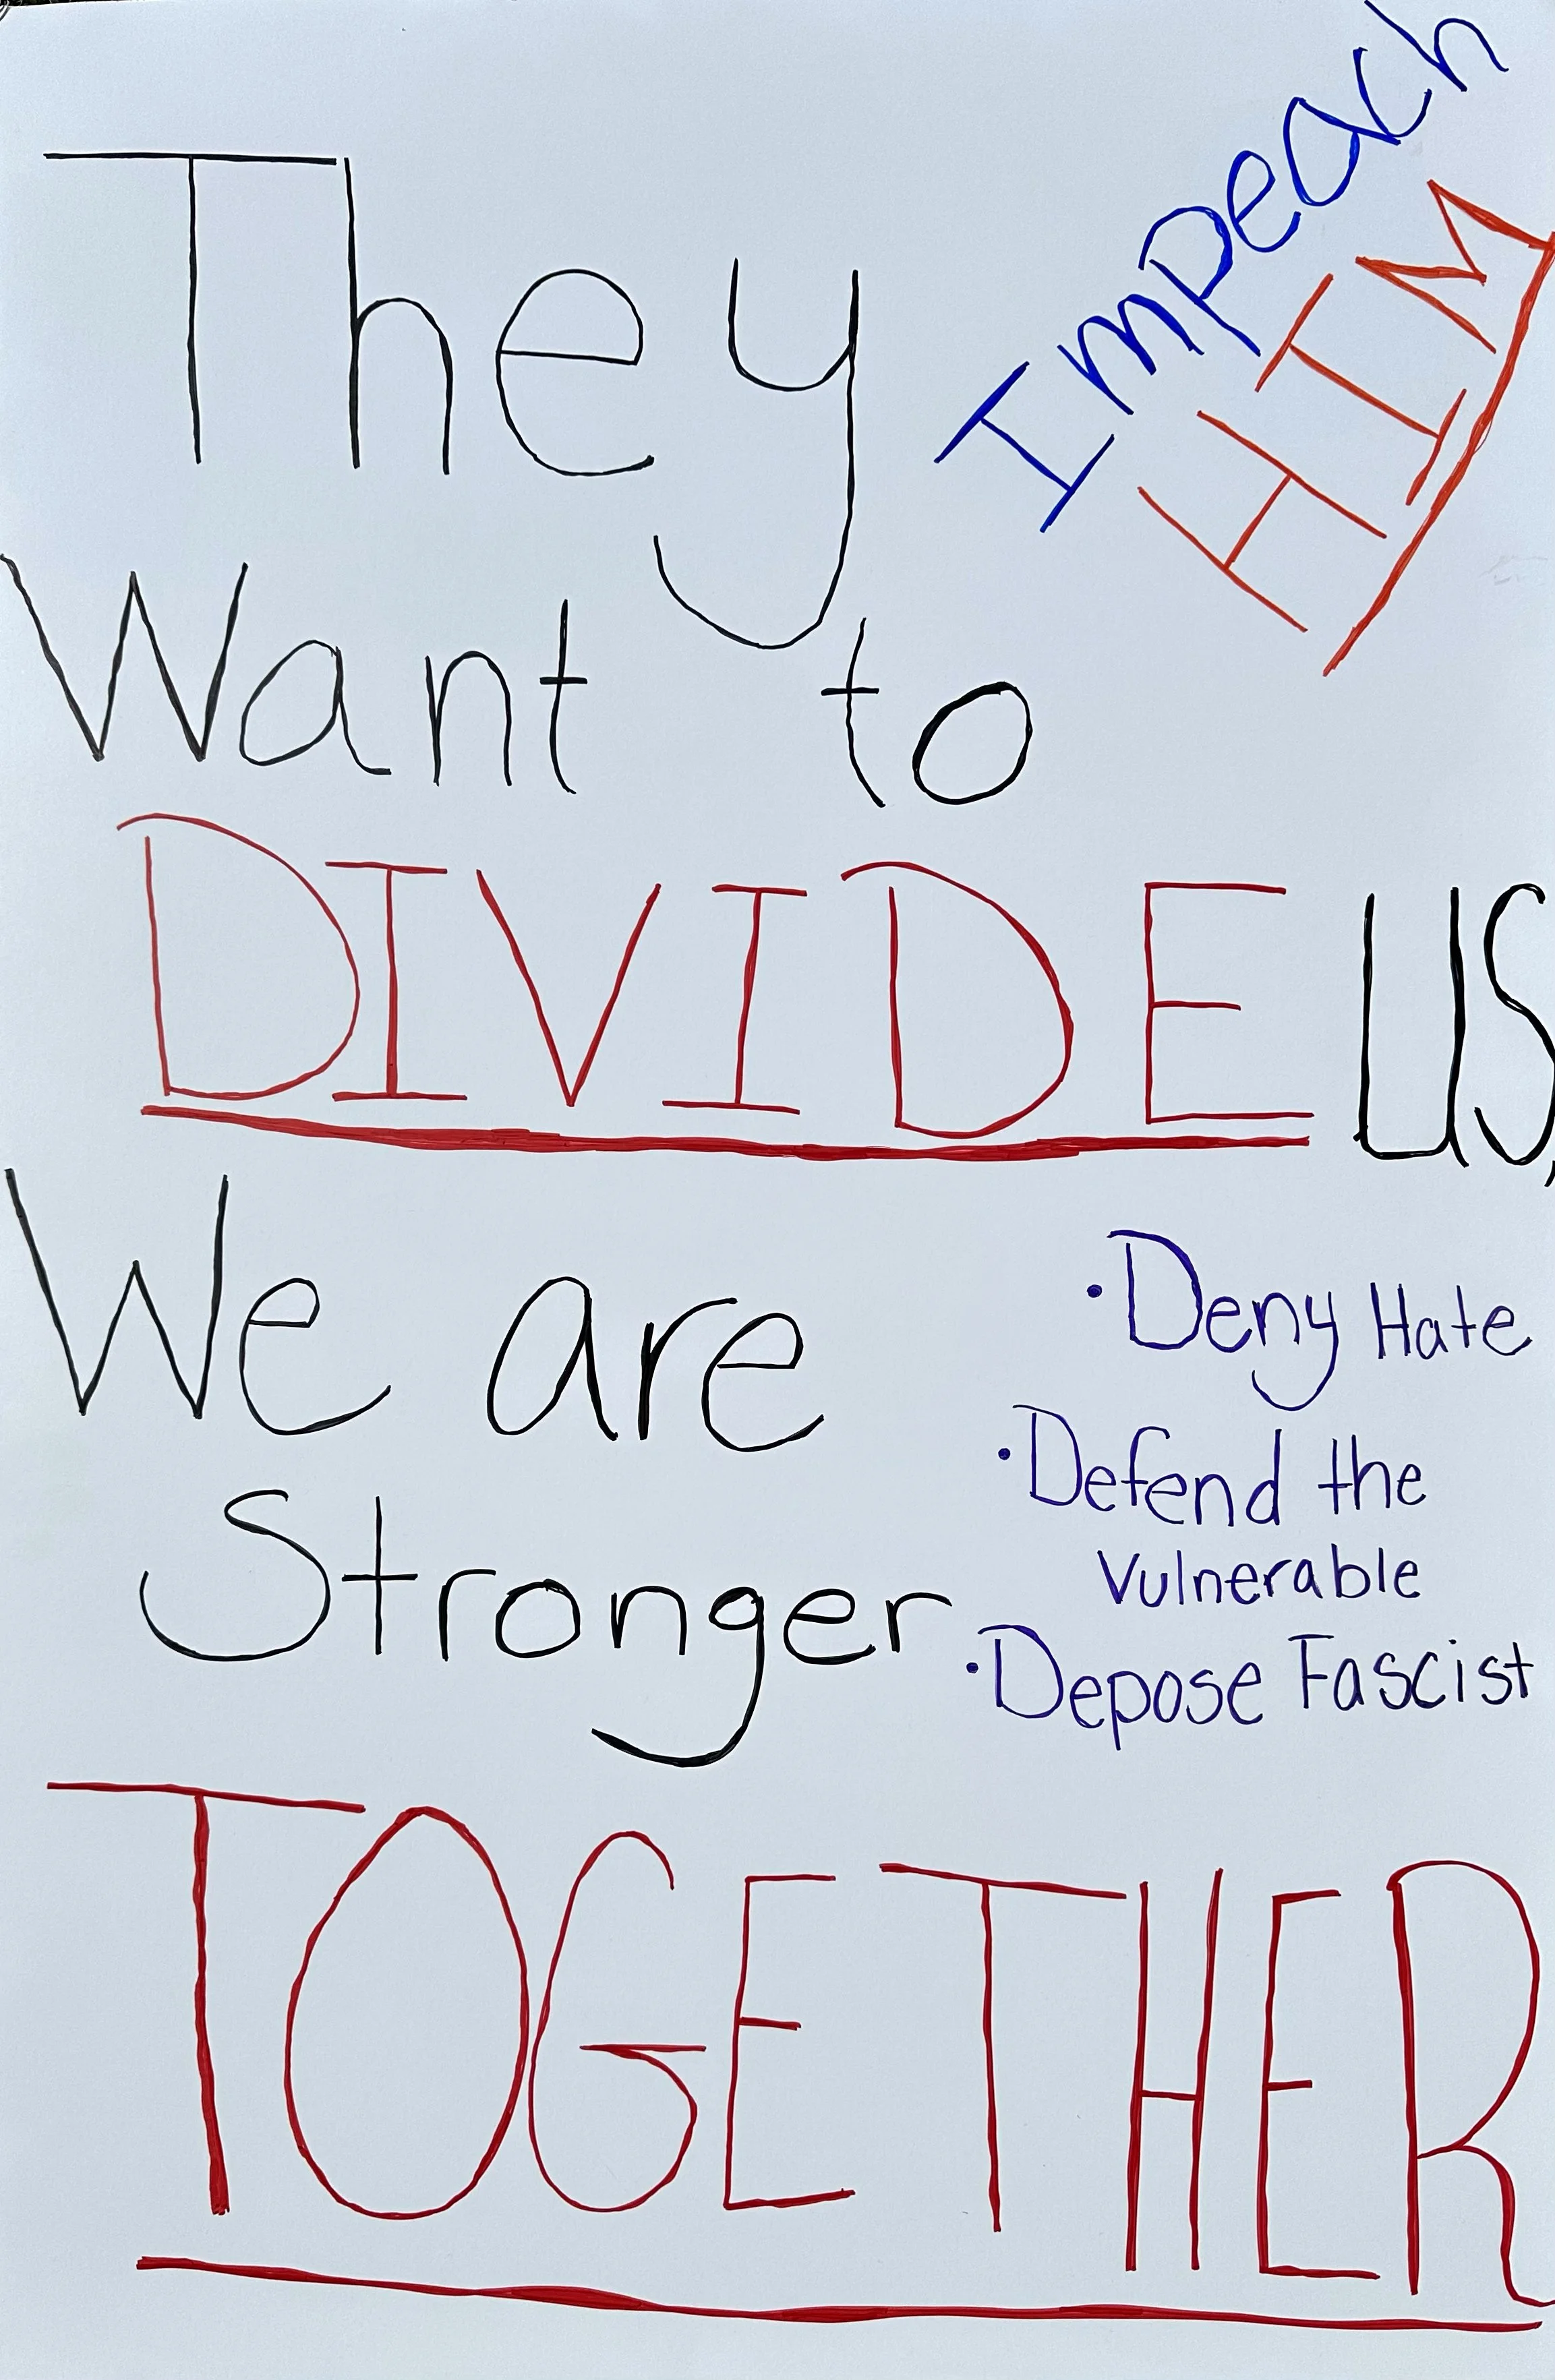 Impeach
HIM
They
Want to
DIVIDE US,
We are
Stronger
• Deny Hate
• Defend the
Vulnerable
• Depose Fascist
TOGETHER